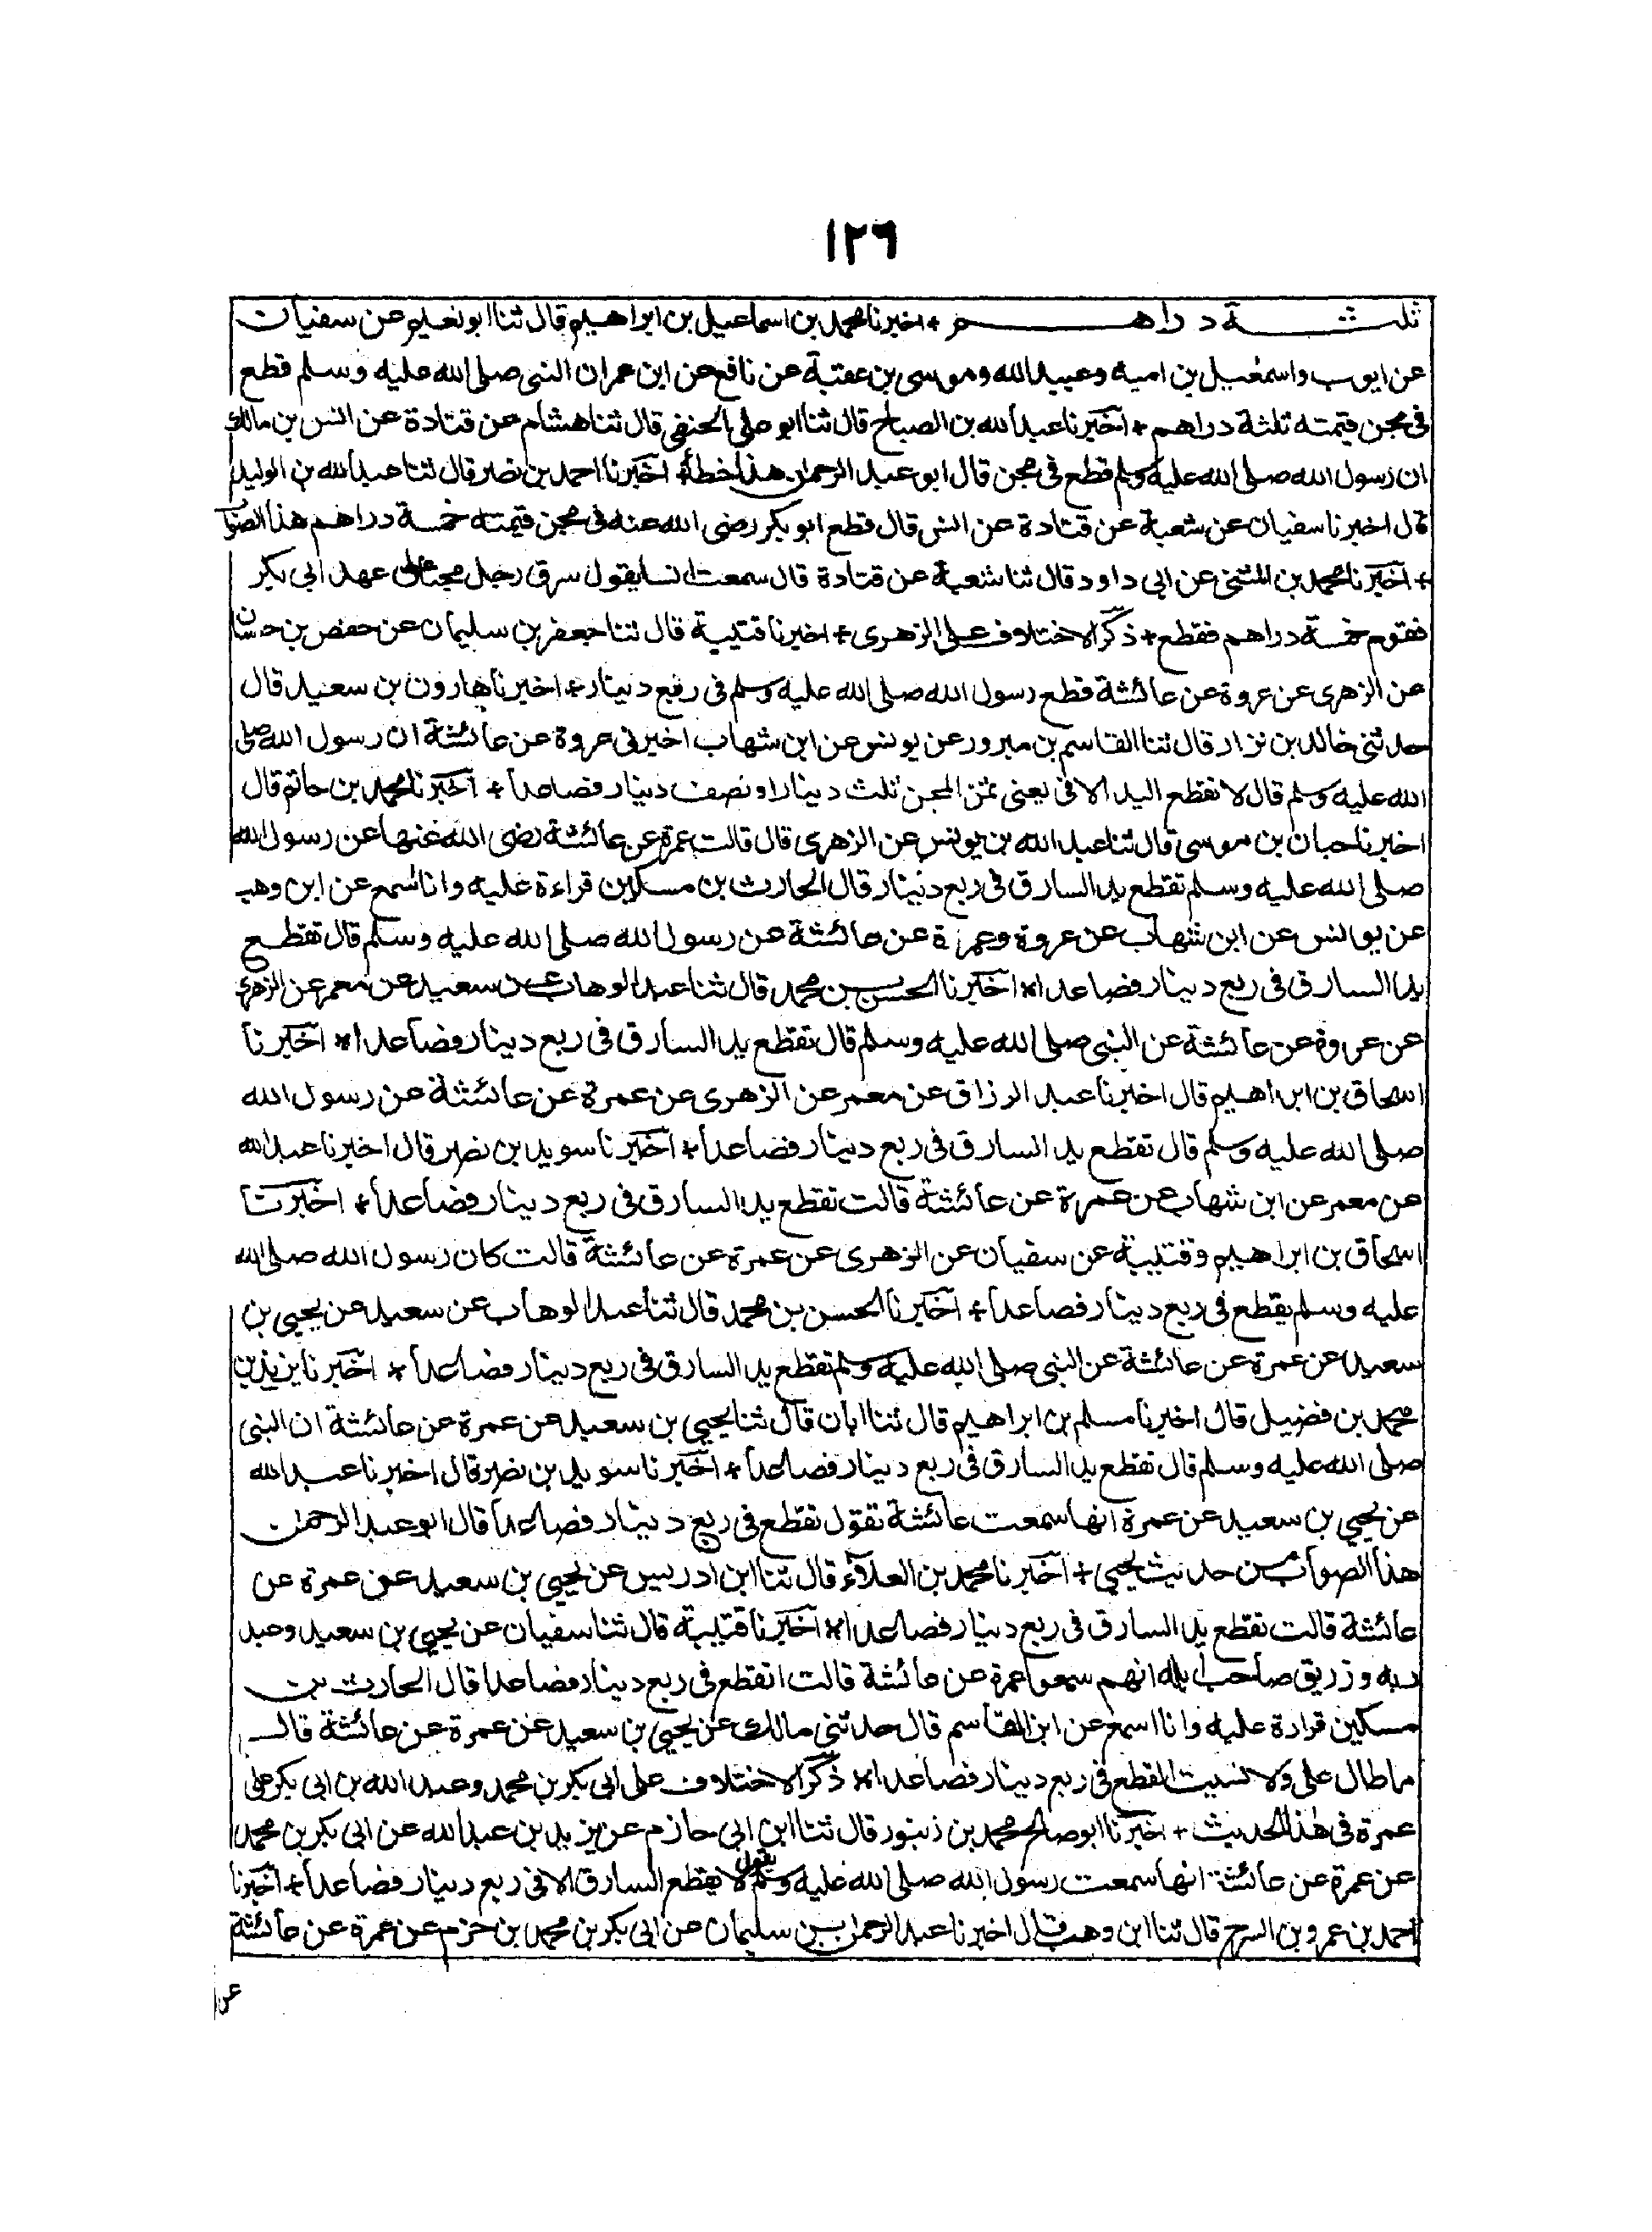 ١٢٦
ثلثة دراهم + اخبرنا محمد بن اسماعيل بن ابراهيم قال ثنا ابو نعيم عن سفيان
عن ايوب واسمعيل بن امية وعبيد الله وموسى بن عقبة عن نافع عن ابن عمران النبى صلى الله عليه وسلم قطع
فى مجن قيمته ثلثة دراهم + اخبرنا عبد الله بن الصباح قال ثنا ابو على الحنفى قال ثنا هشام عن قتادة عن انس بن مالك
ان رسول الله صلى الله عليه وسلم قطع فى مجن قال ابو عبد الرحمن هذا خطأ + اخبرنا احمد بن نصر قال ثنا عبد الله بن الوليد
قال اخبرنا سفيان عن شعبة عن قتادة عن انس قال قطع ابو بكر رضى الله عنه فى مجن قيمته خمسة دراهم هذا الصواب
+ اخبرنا محمد بن المثنى عن ابى داود قال ثنا شعبة عن قتادة قال سمعت انسا يقول سرق رجل مجنا على عهد ابى بكر
فقوم خمسة دراهم فقطع + ذكر الاختلاف على الزهرى + اخبرنا قتيبة قال ثنا جعفر بن سليمان عن حفص بن حسان
عن الزهرى عن عروة عن عائشة قطع رسول الله صلى الله عليه وسلم فى ربع دينار + اخبرنا هارون بن سعيد قال
حدثنى خالد بن نزار قال ثنا القاسم بن مبرور عن يونس عن ابن شهاب اخبرنى عروة عن عائشة ان رسول الله صلى
الله عليه وسلم قال لا تقطع اليد الا فى يعنى ثمن المجن ثلث دينار او نصف دينار فصاعدا + اخبرنا محمد بن حاتم قال
اخبرنا حبان بن موسى قال ثنا عبد الله بن يونس عن الزهرى قال قالت عمرة عن عائشة رضى الله عنها عن رسول الله
صلى الله عليه وسلم تقطع يد السارق فى ربع دينار قال الحارث بن مسكين قراءة عليه وانا اسمع عن ابن وهب
عن يونس عن ابن شهاب عن عروة وعمرة عن عائشة عن رسول الله صلى الله عليه وسلم قال تقطع
يد السارق فى ربع دينار فصاعدا * اخبرنا الحسن بن محمد قال ثنا عبد الوهاب عن سعيد عن معمر عن الزهرى
عن عروة عن عائشة عن النبى صلى الله عليه وسلم قال تقطع يد السارق فى ربع دينار فصاعدا * اخبرنا
اسحاق بن ابراهيم قال اخبرنا عبد الرزاق عن معمر عن الزهرى عن عمرة عن عائشة عن رسول الله
صلى الله عليه وسلم قال تقطع يد السارق فى ربع دينار فصاعدا + اخبرنا سويد بن نصر قال اخبرنا عبد الله
عن معمر عن ابن شهاب عن عمرة عن عائشة قالت تقطع يد السارق فى ربع دينار فصاعدا + اخبرنا
اسحاق بن ابراهيم وقتيبة عن سفيان عن الزهرى عن عمرة عن عائشة قالت كان رسول الله صلى الله
عليه وسلم يقطع فى ربع دينار فصاعدا + اخبرنا الحسن بن محمد قال ثنا عبد الوهاب عن سعيد عن يحيى بن
سعيد عن عمرة عن عائشة عن النبى صلى الله عليه وسلم تقطع يد السارق فى ربع دينار فصاعدا * اخبرنا يزيد بن
محمد بن فضيل قال اخبرنا مسلم بن ابراهيم قال ثنا ابان قال ثنا يحيى بن سعيد عن عمرة عن عائشة ان النبى
صلى الله عليه وسلم قال تقطع يد السارق فى ربع دينار فصاعدا + اخبرنا سويد بن نصر قال اخبرنا عبد الله
عن يحيى بن سعيد عن عمرة انها سمعت عائشة تقول تقطع فى ربع دينار فصاعدا قال ابو عبد الرحمن
هذا الصواب من حديث يحيى + اخبرنا محمد بن العلآء قال ثنا ابن ادريس عن يحيى بن سعيد عن عمرة عن
عائشة قالت تقطع يد السارق فى ربع دينار فصاعدا * اخبرنا قتيبة قال ثنا سفيان عن يحيى بن سعيد وعبد
ربه وزريق صاحب ايله انهم سمعوا عمرة عن عائشة قالت القطع فى ربع دينار فصاعدا قال الحارث بن
مسكين قرادة عليه وانا اسمع عن ابن القاسم قال حدثنى مالك عن يحيى بن سعيد عن عمرة عن عائشة قال
ما طال على ولا نسيت القطع فى ربع دينار فصاعدا * ذكر الاختلاف على ابى بكر بن محمد وعبد الله بن ابى بكر على
عمرة فى هذا الحديث + اخبرنا ابو صالح محمد بن زنبور قال ثنا ابن ابى حازم عن يزيد بن عبد الله عن ابى بكر بن محمد
عن عمرة عن عائشة انها سمعت رسول الله صلى الله عليه وسلم يقول لا يقطع السارق الا فى ربع دينار فصاعدا + اخبرنا
احمد بن عمرو بن السرح قال ثنا ابن وهب قال اخبرنا عبد الرحمن بن سليمان عن ابى بكر بن محمد بن حزم عن عمرة عن عائشة
عن